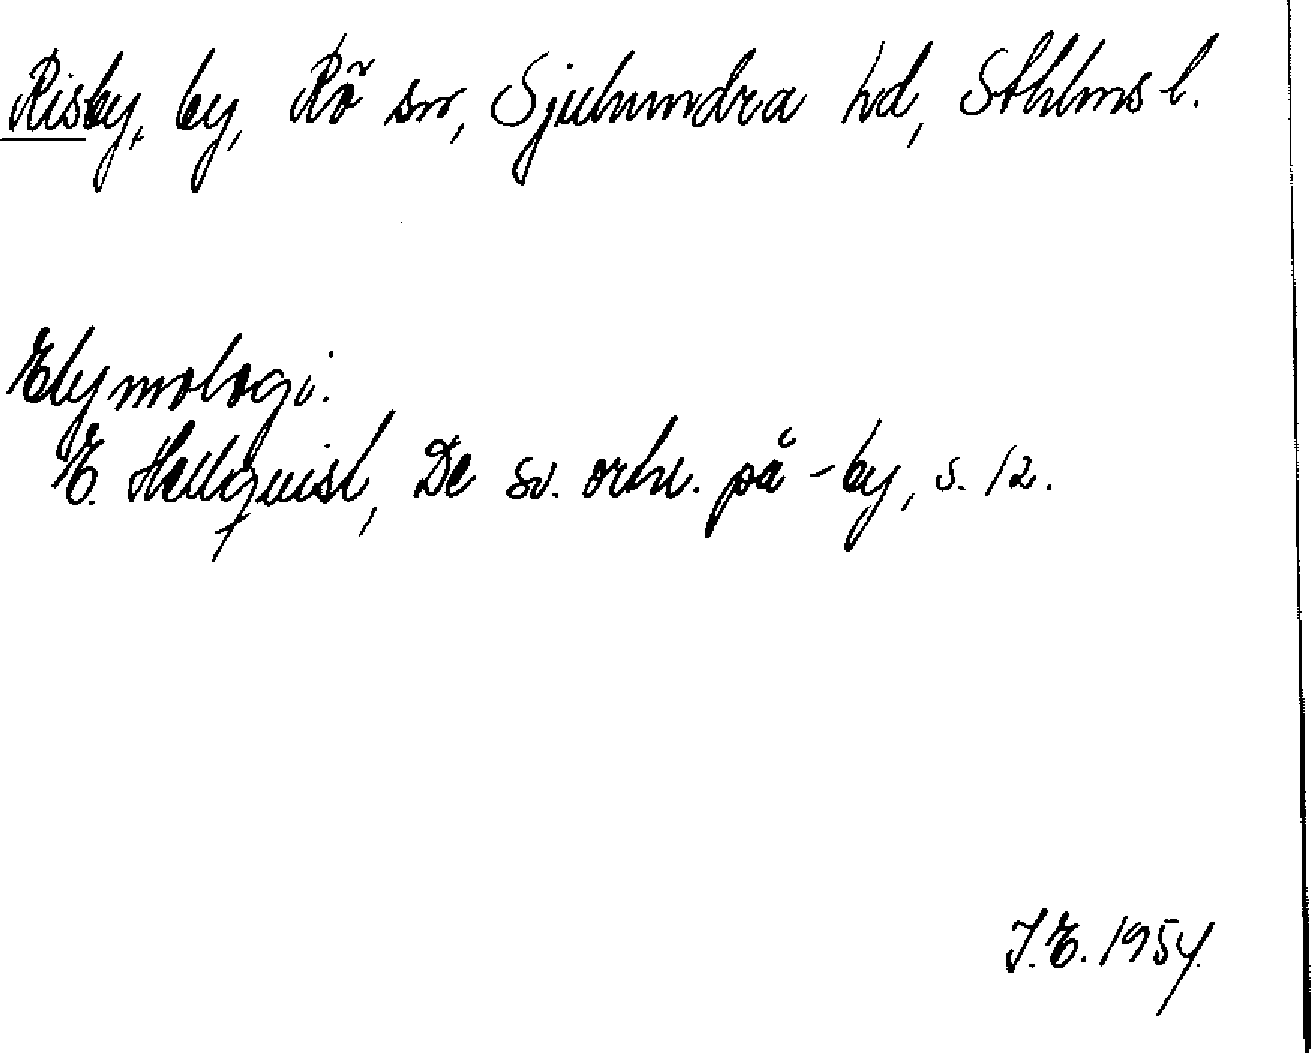 Risby, by, Rö sn, Sjuhundra hd, Sthlms l.
Etymologi.
E. Hellquist, De sv. ortn. på -by, s. 12.
J.E. 1954.